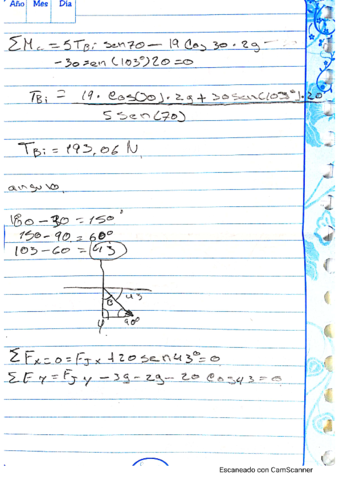 Año Mes Día
ΣMc = 5TBi sen70 - 19 Cos 30·2g -
-30sen(103°)20=0
TBi = (19·Cos(30)·2g+30sen(103°)·20
5sen(70)
TBi = 193,06 N
angulo
180-30=150°
150-90=60°
103-60=43
43
B
φ 90°
ΣFx=0=FJx+20sen43°=0
ΣFy=FJy-3g-2g-20 Cos43=0
Escaneado con CamScanner